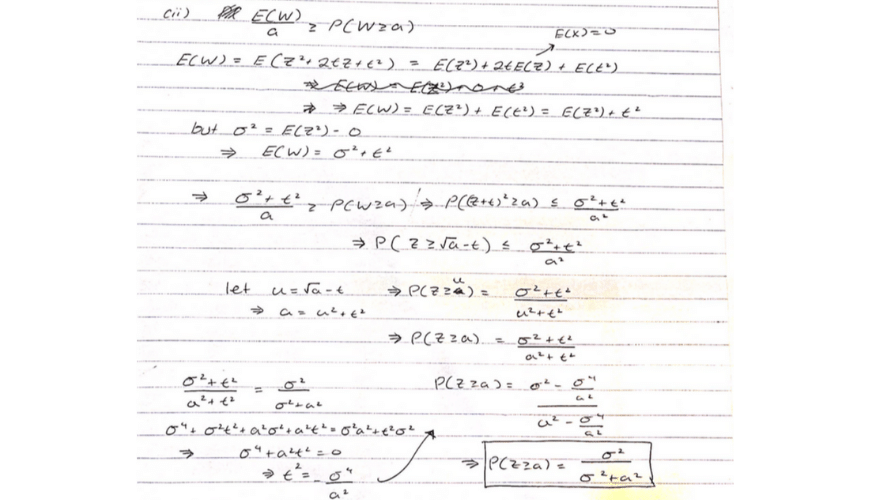 (ii) E(W)/a ≥ P(W≥a)
E(X)=0
E(W) = E(Z²+2tZ+t²) = E(Z²)+2tE(Z)+E(t²)
⇒ E(W) = E(Z²)+0+t²
⇒ ⇒ E(W) = E(Z²) + E(t²) = E(Z²)+t²
but σ² = E(Z²) - 0
⇒ E(W) = σ²+t²
⇒ (σ²+t²)/a ≥ P(W≥a) ⇒ P((Z+t)²≥a) ≤ (σ²+t²)/a²
⇒ P(Z≥√a-t) ≤ (σ²+t²)/a²
let u=√a-t ⇒ P(Z≥u) = (σ²+t²)/(u²+t²)
⇒ a = u²+t²
⇒ P(Z≥a) = (σ²+t²)/(a²+t²)
(σ²+t²)/(a²+t²) = σ²/(σ²+a²)
P(Z≥a) = (σ² - σ⁴/a²)/(a² - σ⁴/a²)
σ⁴+σ²t²+a²σ²+a²t²=σ²a²+t²σ²
⇒ σ⁴+a²t²=0
⇒ t²=-σ⁴/a²
⇒ P(Z≥a) = σ²/(σ²+a²)